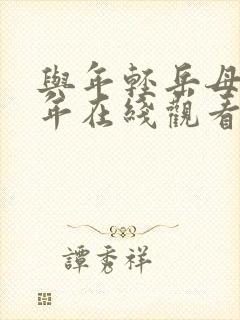 與年輕岳母
年在綫觀看
譚秀祥